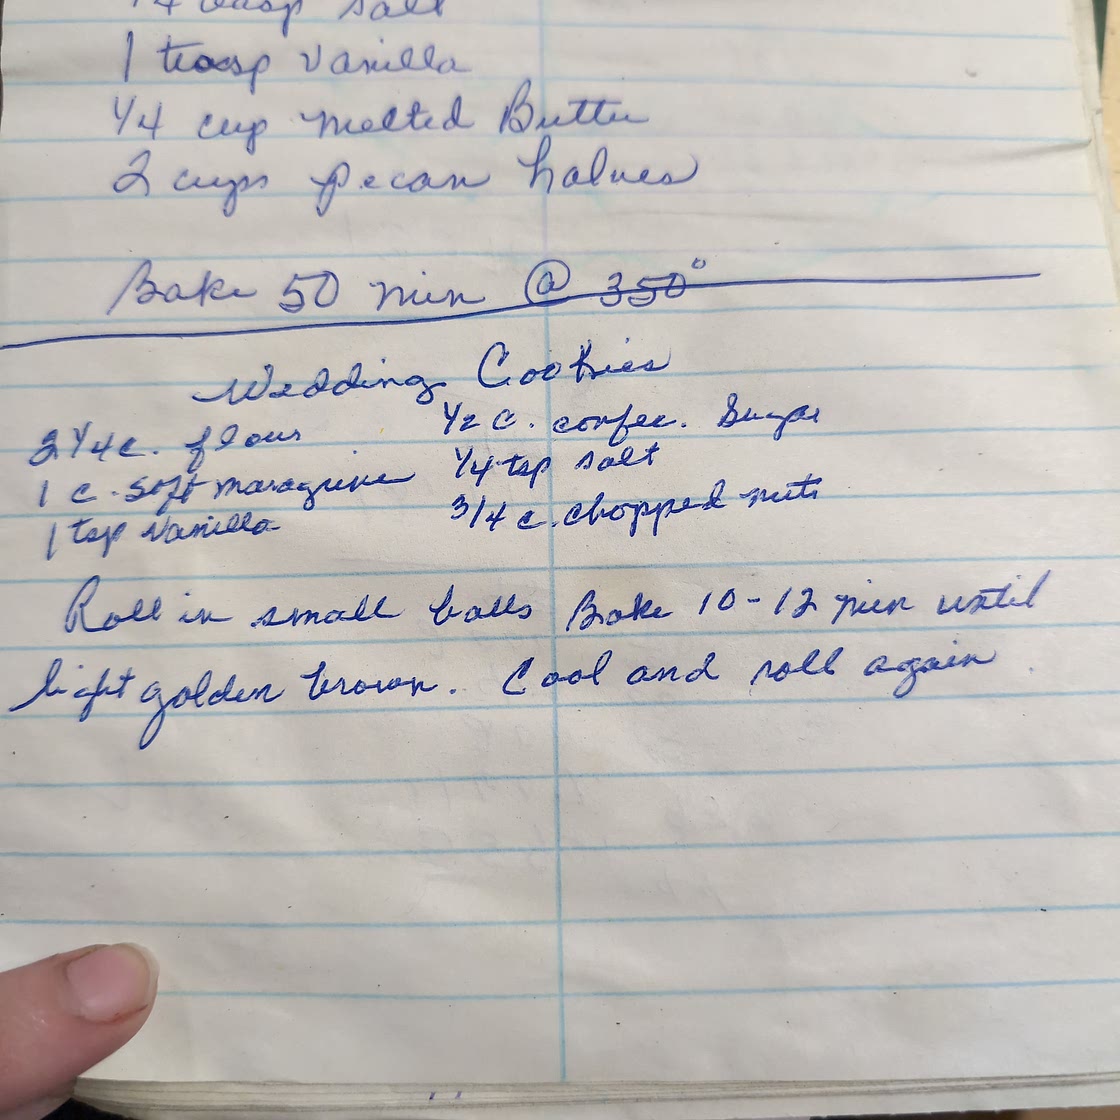 1/4 teasp salt
1 teasp vanilla
1/4 cup melted Butter
2 cups pecan halves
Bake 50 min @ 350°
Wedding Cookies
2 1/4 c. flour
1/2 c. confec. Sugar
1 c. soft maragrine
1/4 tsp salt
1 tsp vanilla
3/4 c. chopped nuts
Roll in small balls Bake 10-12 min until
light golden brown. Cool and roll again.